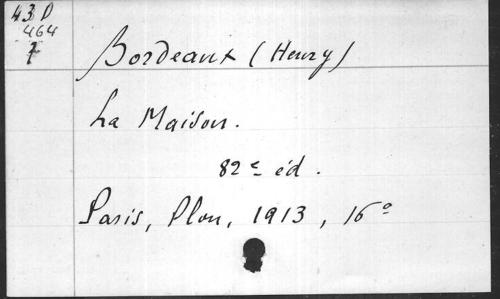 43 D
464
7
Bordeaux (Henry)
La Maison.
82e éd.
Paris, Plon, 1913, 16º